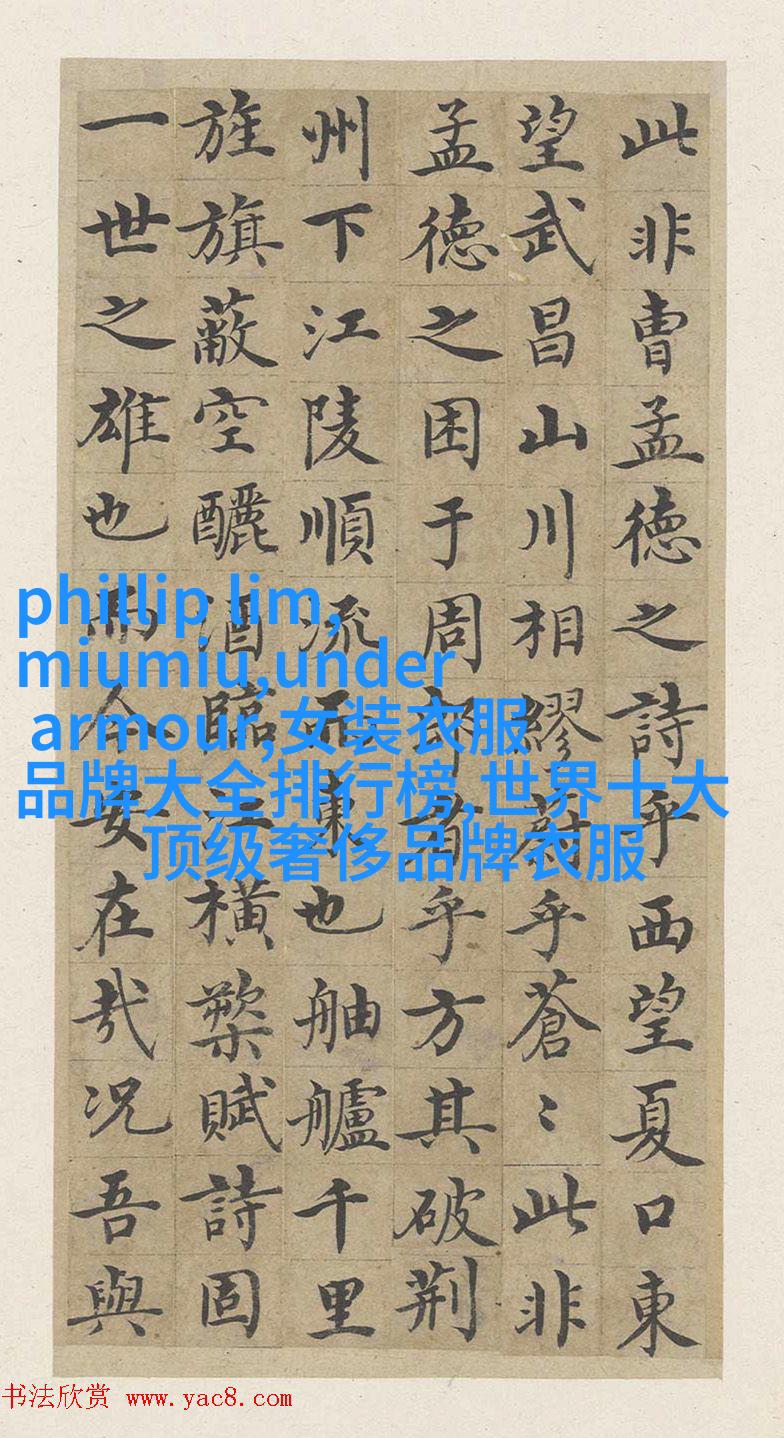 此非曹孟德之詩乎西望夏口東
望武昌山川相繆蔚乎蒼〻此非
孟德之困于周郎者乎方其破荊
州下江陵順流而東也舳艫千里
旌旗蔽空釃酒臨江橫槊賦詩固
一世之雄也而今安在哉況吾與
phillip lim,
miumiu,under
armour,女装衣服
品牌大全排行榜,世界十大
顶级奢侈品牌衣服
书法欣赏 www.yac8.com